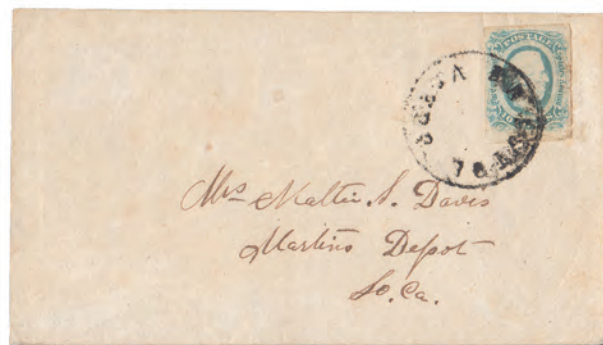 POSTAGE
Mrs Mattie S. Davis
Martins Depot
So. Ca.